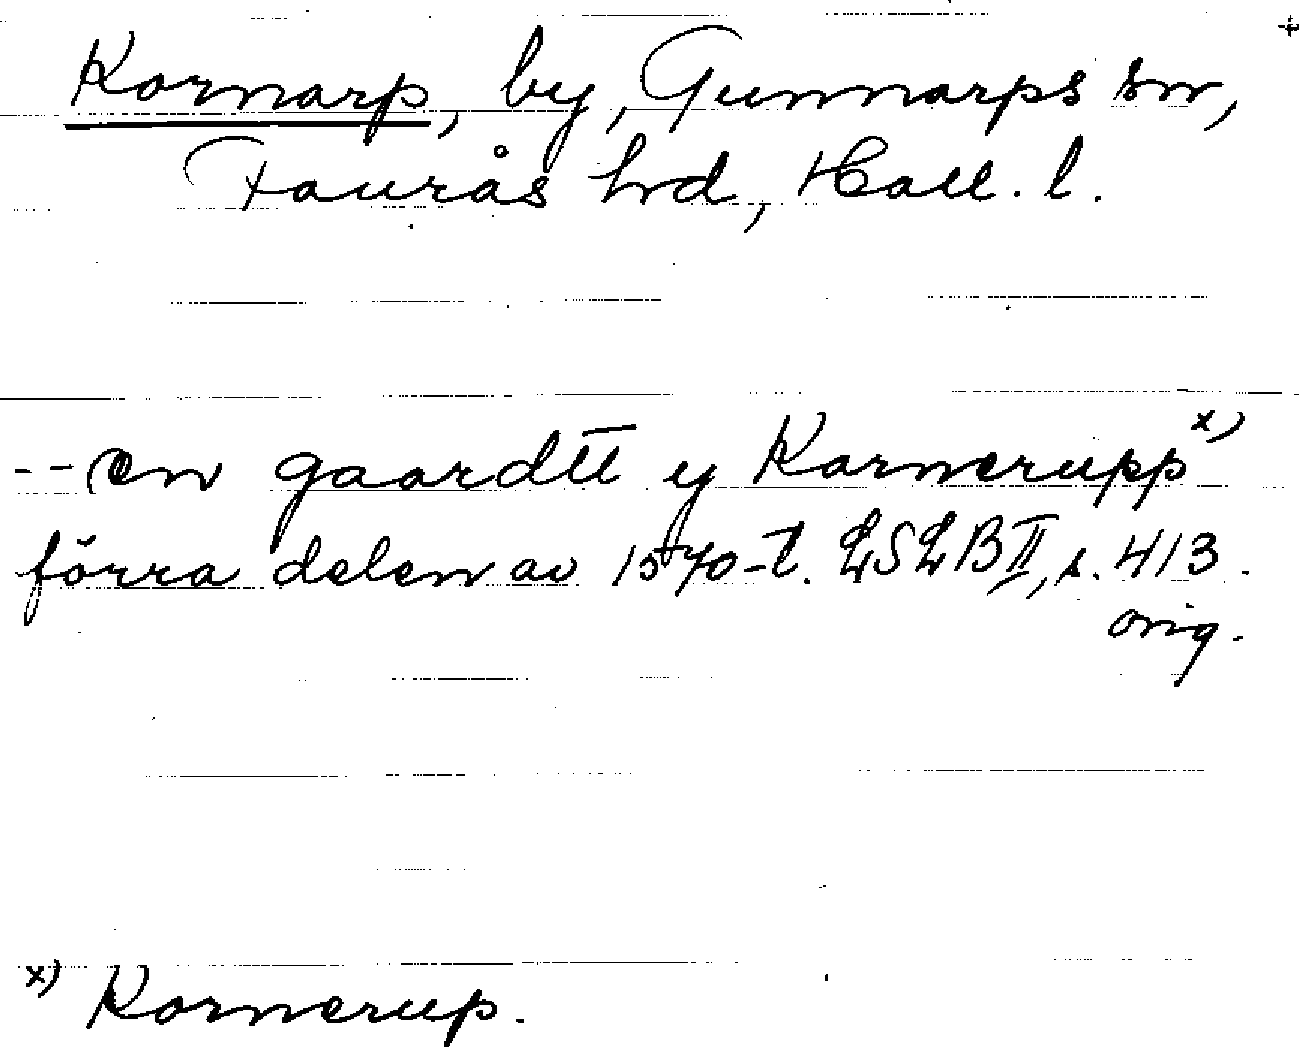 +
Kornarp, by, Gunnarps sn,
Faurås hrd, Hall. l.
-- en gaardtt y Karnerupp x)
förra delen av 1570-t. LSLB II, s. 413.
orig.
x) Kornerup.